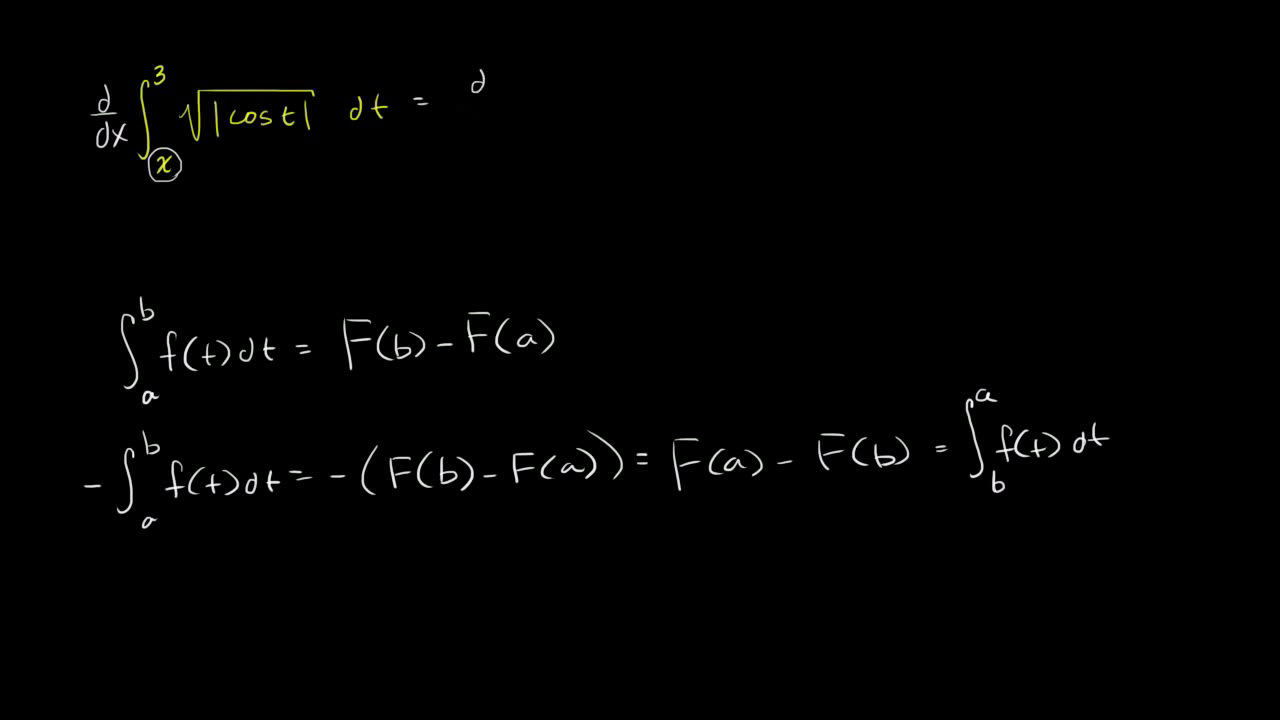 d/dx ∫_x^3 √|cos t| dt = d
∫_a^b f(t)dt = F(b) - F(a)
-∫_a^b f(t)dt = -(F(b) - F(a)) = F(a) - F(b) = ∫_b^a f(t) dt